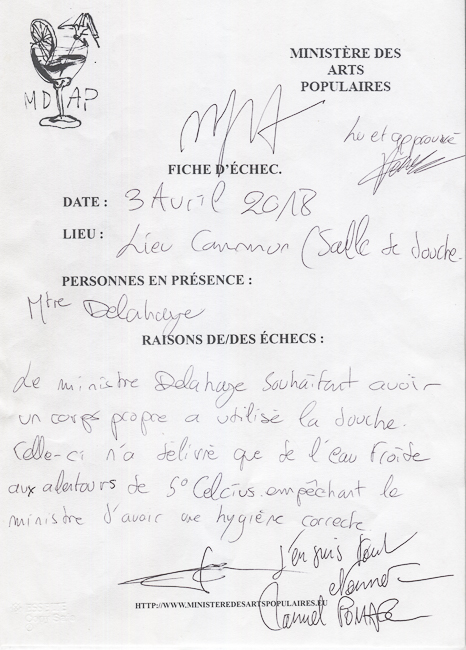 MD AP
MINISTÈRE DES
ARTS
POPULAIRES
Lu et approuvé
FICHE D'ÉCHEC.
DATE : 3 Avril 2018
LIEU : Lieu Commun (Salle de douche.
PERSONNES EN PRÉSENCE :
Mtre Delahaye
RAISONS DE/DES ÉCHECS :
Le ministre Delahaye souhaitant avoir
un corps propre a utilisé la douche.
Celle-ci n'a délivré que de l'eau froide
aux alentours de 5° Celcius. empêchant le
ministre d'avoir une hygiène correcte.
J'en suis tout
HTTP://WWW.MINISTEREDESARTSPOPULAIRES.EU